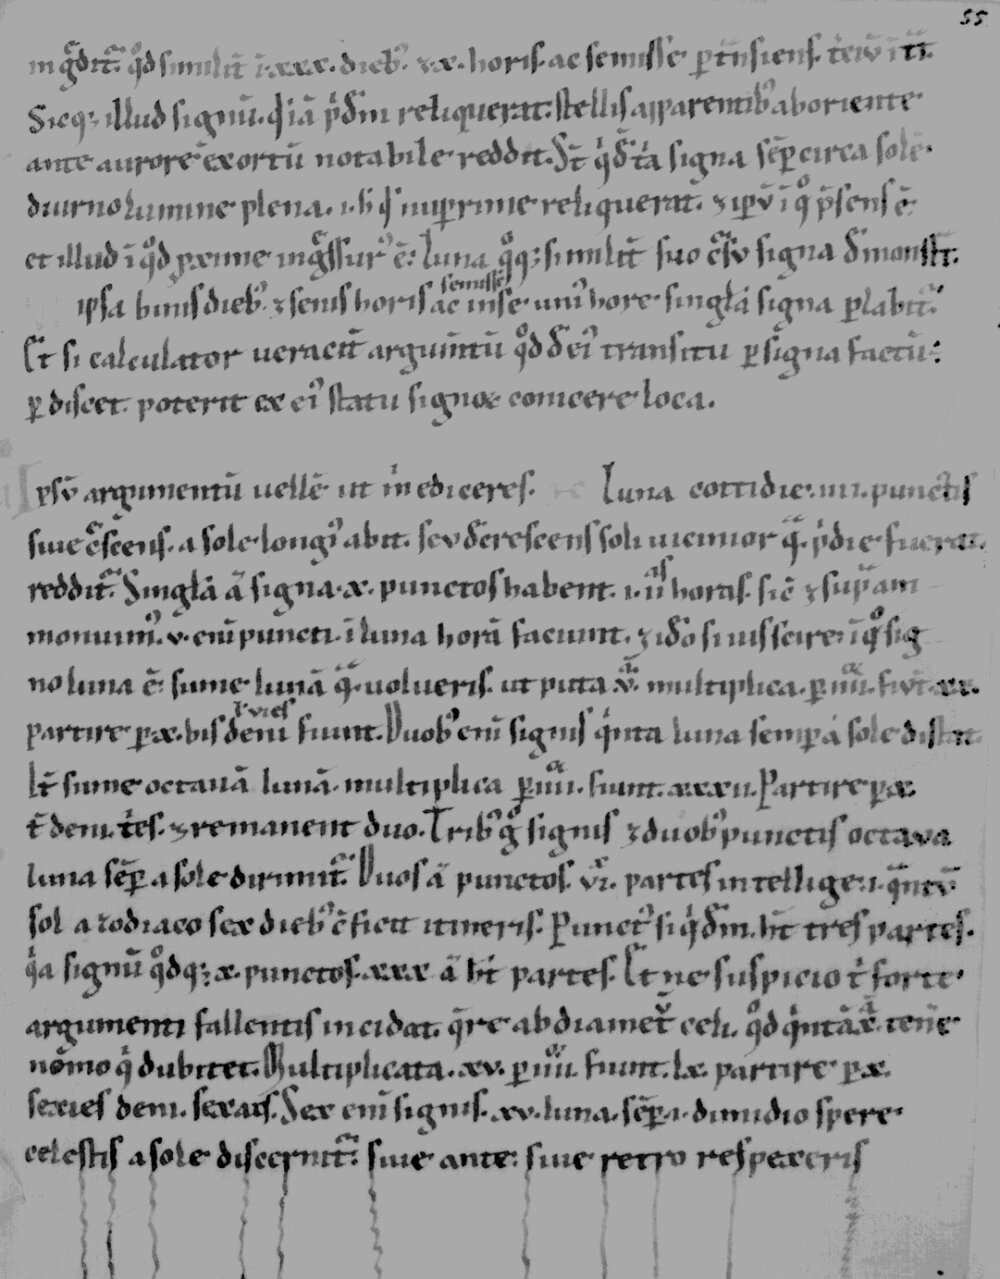 55
ingᷓdit᷑. qͦd similit̄ ī xxx. dieb᷒. ⁊ x. horis. ac semisse p̱tn̄siens.
Sicq; illud signū. qͥ iā p̱dē reliquerat. stellis apparentib᷒ ab oriente
ante aurore exortū notabile reddit. S;t qͥdē iā signa sēp̱ circa solē.
diurno lumine plena. .i. h̄ qͥ nup̱rime reliquerat. ⁊ ip̄ū ī qͦ p̄sens ē
et illud ī qͦd pxime ingᷓssur᷒ ē. Luna qͦq; similit̄ suo c̄su signa dēmonst̄.
semisse
ipsa binis dieb᷒. ⁊ senis horis ac inse uni᷒ hore singl̄a signa p̱labit᷑.
Et si calculator veracit̄ argum̄tū qͦd de ei᷒ transitu p̱ signa factū:
p̱ discet. poterit ex ei᷒ statu signoꝝ conicere loca.
Ipsū argumentū vellē ut m̄ ediceres. Luna cottidie .iiii. punctis
sive c̄scens. a sole longi᷒ abit. seu dēcrescens soli vicinior qᷓ̄. p̱die fuerat.
reddit᷑. Singl̄a ā signa .x. punctos habent. .i. ii
as
horas. sic̄ ⁊ sup̱iam
monuim᷒. v. eni̅ puncti. ī luna horā faciunt. ⁊ ido si vis scire. ī qͦ sig
no luna ē. sume lunā qᷓ̄. volueris. ut puta v. multiplica p̱ iiii. fiūt xx.
partire p̱ x. bis deni fiunt. Duob᷒ eni̅ signis qͥnta luna semp̱ a sole distat.
It̄ sume octavā lunā. multiplica p̱ iiii. fiunt. xxxii. Partire p̱ x.
t̄ deni. t̄es. ⁊ remanent duo. Trib᷒ gͦ signis ⁊ duob᷒ punctis octava
luna sēp̱ a sole dirimit᷑. Duos ā punctos. vi. partes intellige. .i. qᷓntū
sol a zodiaco sex dieb᷒ c̄ficit itineris. Punct᷒ siqͥdē. h̄t tres partes.
qͥa signū qͦdq; x. punctos. xxx ā h̄t partes. Et ne suspicio t̄ forte
argumenti fallentis incidat. q̄re ab diamet̄ celi. qͦd qͥntā x. tene
nōmo qͥ dubitet. Multiplicata. xv. p̱ iiii. fiunt. lx. partire p̱ x.
sexies deni. sexais. Sex eni̅ signis. xv. luna. sēp̱ .i. dimidio spere
celestis a sole discernit᷑. sive ante: sive retro respexeris